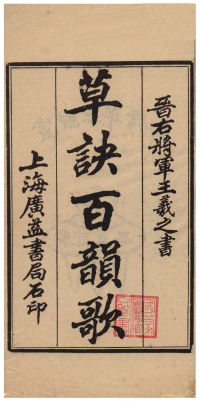 晉右將軍王羲之書
草訣百韻歌
上海廣益書局石印